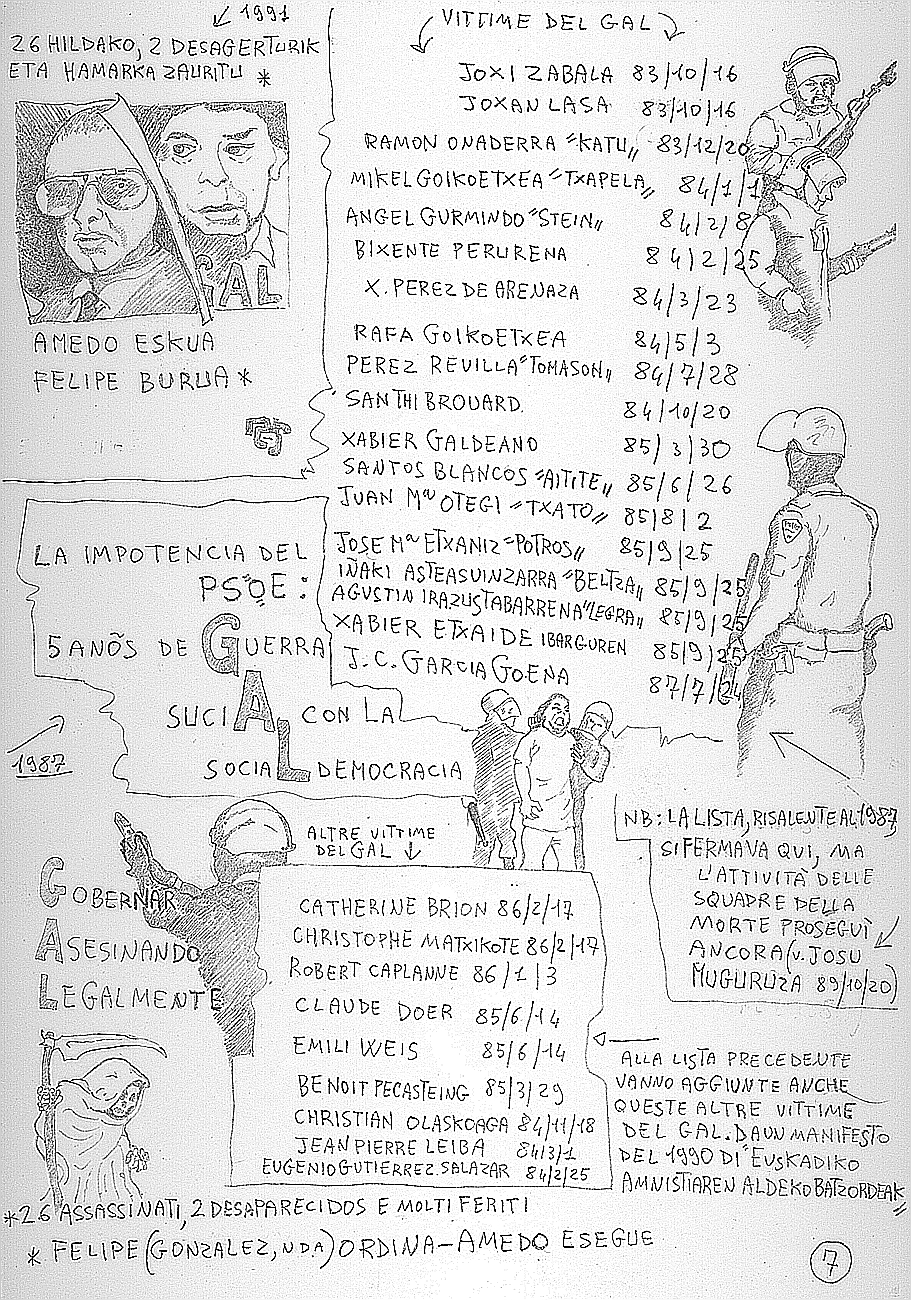 ↙ 1991
26 HILDAKO, 2 DESAGERTURIK
ETA HAMARKA ZAURITU *
GAL
AMEDO ESKUA
FELIPE BURUA *
VITTIME DEL GAL
JOXI ZABALA 83/10/16
JOXAN LASA 83/10/16
RAMON ONADERRA "KATU" 83/12/20
MIKEL GOIKOETXEA "TXAPELA" 84/1/1
ANGEL GURMINDO "STEIN" 84/2/8
BIXENTE PERURENA 84/2/25
X. PEREZ DE ARENAZA 84/3/23
RAFA GOIKOETXEA 84/5/3
PEREZ REVILLA "TOMASON" 84/7/28
SANTHI BROUARD. 84/10/20
XABIER GALDEANO 85/3/30
SANTOS BLANCOS "AITITE" 85/6/26
JUAN Mª OTEGI "TXATO" 85/8/2
JOSE Mª ETXANIZ "POTROS" 85/9/25
IÑAKI ASTEASUINZARRA "BELTZA" 85/9/25
AGUSTIN IRAZUSTABARRENA "LEGRA" 85/9/25
XABIER ETXAIDE IBARGUREN 85/9/25
J.C. GARCIA GOENA 87/7/24
LA IMPOTENCIA DEL
PSOE:
5 ANÕS DE GUERRA
SUCIA CON LA
SOCIAL DEMOCRACIA
1987
GOBERNAR
ASESINANDO
LEGALMENTE
ALTRE VITTIME
DEL GAL ↓
CATHERINE BRION 86/2/17
CHRISTOPHE MATXIKOTE 86/2/17
ROBERT CAPLANNE 86/1/3
CLAUDE DOER 85/6/14
EMILI WEIS 85/6/14
BENOIT PECASTEING 85/3/29
CHRISTIAN OLASKOAGA 84/11/18
JEAN PIERRE LEIBA 84/3/1
EUGENIO GUTIERREZ.SALAZAR 84/2/25
NB: LA LISTA, RISALENTE AL 1987,
SI FERMAVA QUI, MA
L'ATTIVITÀ DELLE
SQUADRE DELLA
MORTE PROSEGUÌ
ANCORA (v. JOSU
MUGURUZA 89/10/20)
ALLA LISTA PRECEDENTE
VANNO AGGIUNTE ANCHE
QUESTE ALTRE VITTIME
DEL GAL. DA UN MANIFESTO
DEL 1990 DI "EUSKADIKO
AMNISTIAREN ALDEKO BATZORDEAK"
*26 ASSASSINATI, 2 DESAPARECIDOS E MOLTI FERITI
* FELIPE (GONZALEZ, N.D.A) ORDINA - AMEDO ESEGUE
7